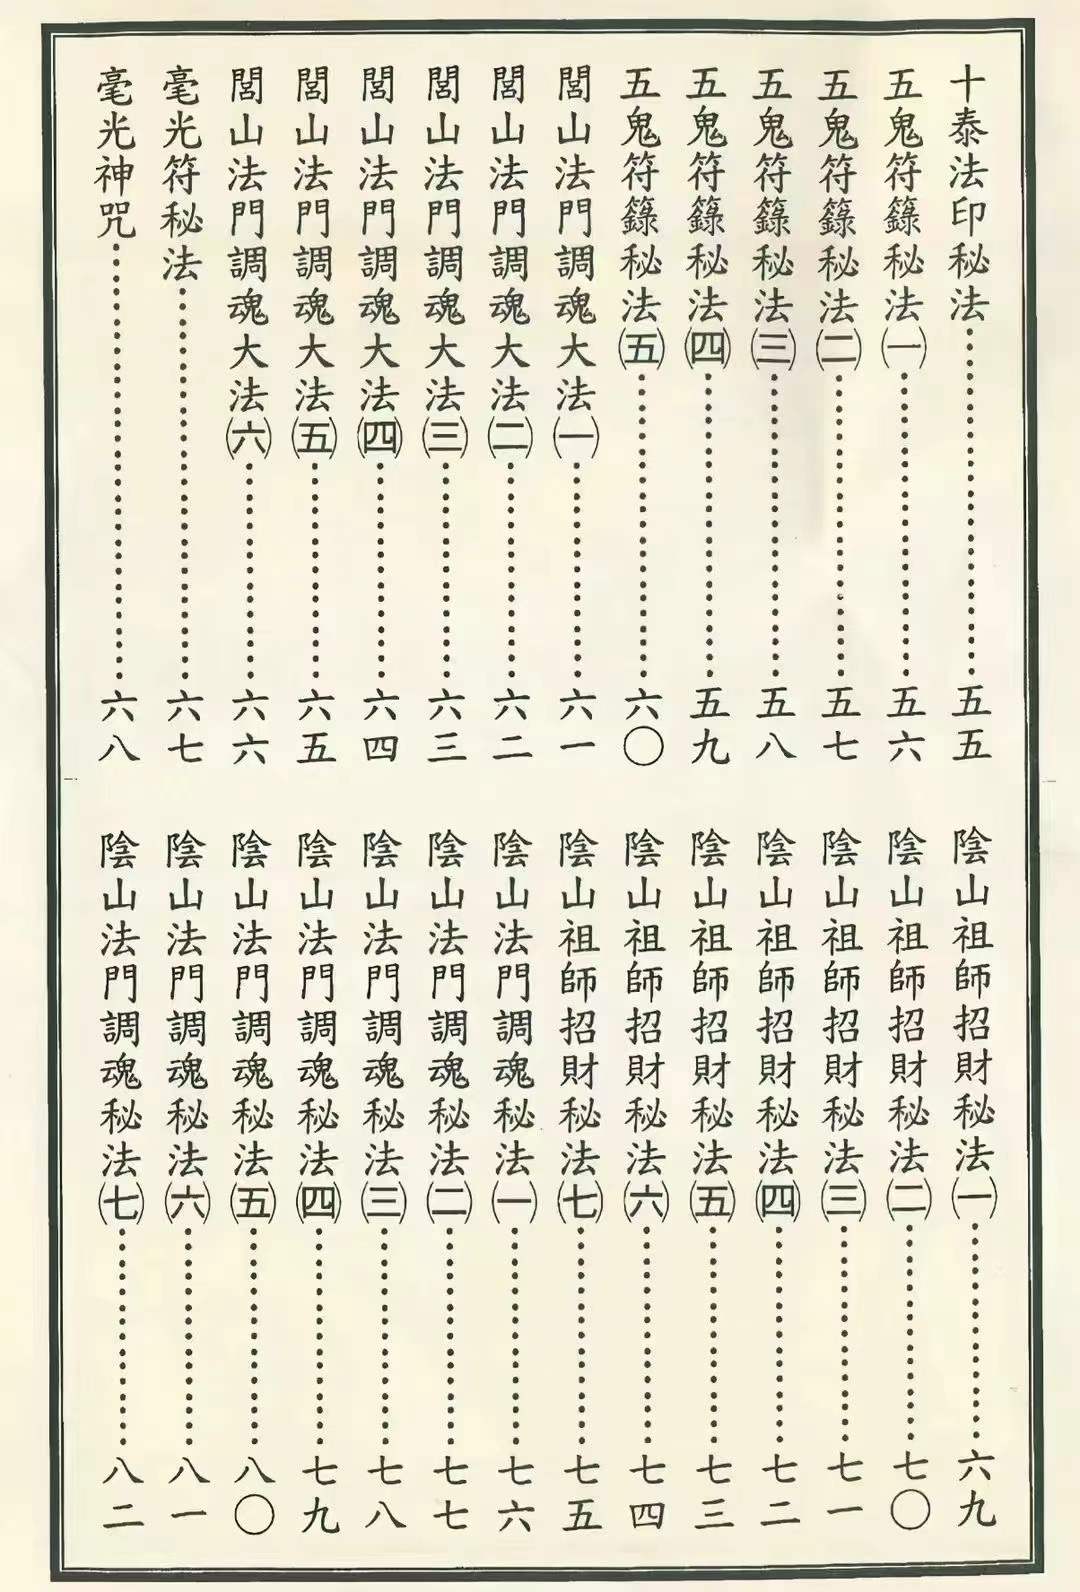 十泰法印秘法⋯⋯⋯⋯五五
五鬼符籙秘法㈠⋯⋯⋯⋯五六
五鬼符籙秘法㈡⋯⋯⋯⋯五七
五鬼符籙秘法㈢⋯⋯⋯⋯五八
五鬼符籙秘法㈣⋯⋯⋯⋯五九
五鬼符籙秘法㈤⋯⋯⋯⋯六〇
閭山法門調魂大法㈠⋯⋯⋯⋯六一
閭山法門調魂大法㈡⋯⋯⋯⋯六二
閭山法門調魂大法㈢⋯⋯⋯⋯六三
閭山法門調魂大法㈣⋯⋯⋯⋯六四
閭山法門調魂大法㈤⋯⋯⋯⋯六五
閭山法門調魂大法㈥⋯⋯⋯⋯六六
毫光符秘法⋯⋯⋯⋯六七
毫光神咒⋯⋯⋯⋯六八
陰山祖師招財秘法㈠⋯⋯⋯⋯六九
陰山祖師招財秘法㈡⋯⋯⋯⋯七〇
陰山祖師招財秘法㈢⋯⋯⋯⋯七一
陰山祖師招財秘法㈣⋯⋯⋯⋯七二
陰山祖師招財秘法㈤⋯⋯⋯⋯七三
陰山祖師招財秘法㈥⋯⋯⋯⋯七四
陰山祖師招財秘法㈦⋯⋯⋯⋯七五
陰山法門調魂秘法㈠⋯⋯⋯⋯七六
陰山法門調魂秘法㈡⋯⋯⋯⋯七七
陰山法門調魂秘法㈢⋯⋯⋯⋯七八
陰山法門調魂秘法㈣⋯⋯⋯⋯七九
陰山法門調魂秘法㈤⋯⋯⋯⋯八〇
陰山法門調魂秘法㈥⋯⋯⋯⋯八一
陰山法門調魂秘法㈦⋯⋯⋯⋯八二